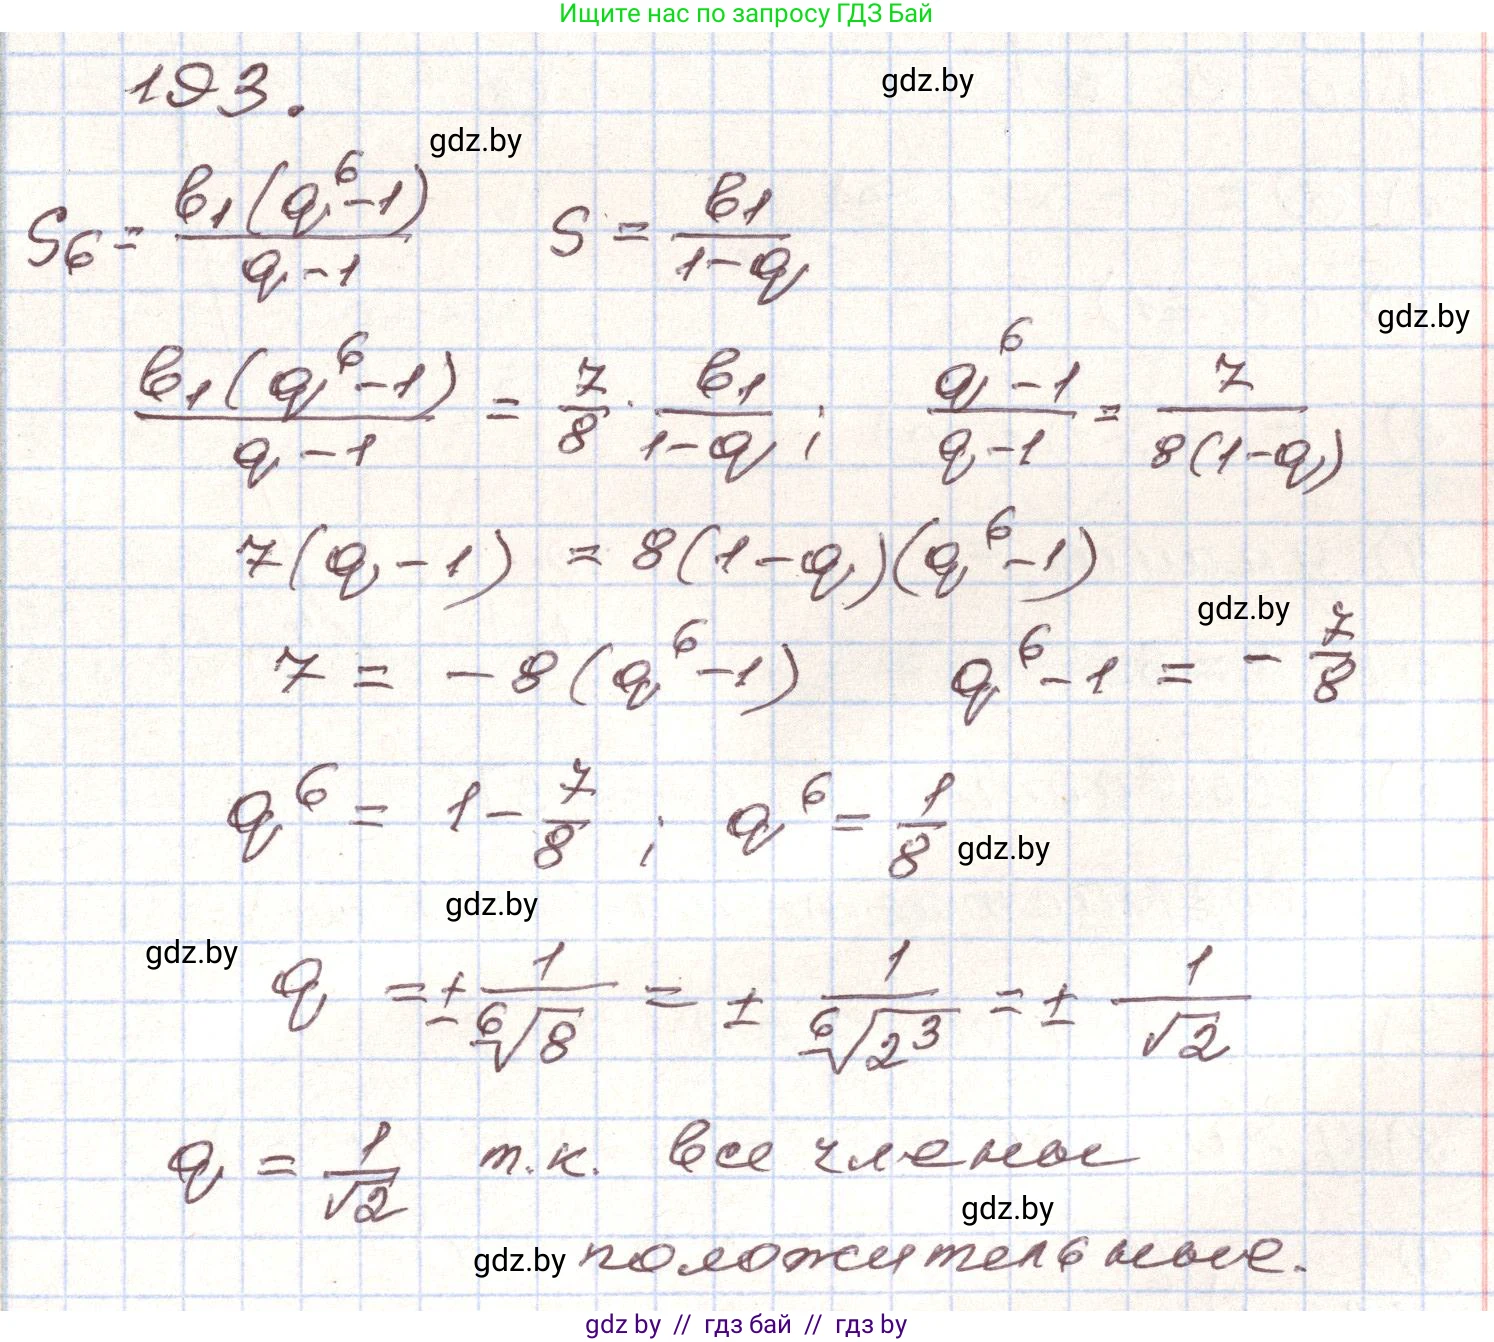 Ищите нас по запросу ГДЗ Бай
193.
gdz.by
gdz.by
S₆ = b₁(q⁶-1)/(q-1)   S = b₁/(1-q)
gdz.by
b₁(q⁶-1)/(q-1) = 7/8 · b₁/(1-q) ;   (q⁶-1)/(q-1) = 7/(8(1-q))
7(q-1) = 8(1-q)(q⁶-1)
gdz.by
7 = -8(q⁶-1)   q⁶-1 = -7/8
q⁶ = 1 - 7/8 ;   q⁶ = 1/8
gdz.by
gdz.by
gdz.by
q = ± 1/⁶√8 = ± 1/⁶√2³ = ± 1/√2
q = 1/√2 т.к. все члены
gdz.by
gdz.by
положительные.
gdz by // гдз бай // гдз by